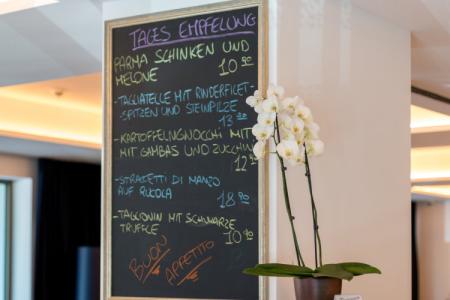 TAGES EMPFELUNG
PARMA SCHINKEN UND
MELONE
10 90
-TAGLIATELLE MIT RINDERFILET-
SPITZEN UND STEINPILZE
13 80
-KARTOFFELNGNOCCHI MIT
MIT GAMBAS UND ZUCCHIN
12 50
-STRACETTI DI MANZO
AUF RUCOLA
18 90
-TAGLIONIN MIT SCHWARZE
TRUFFLE
10 90
BUON
APPETITO